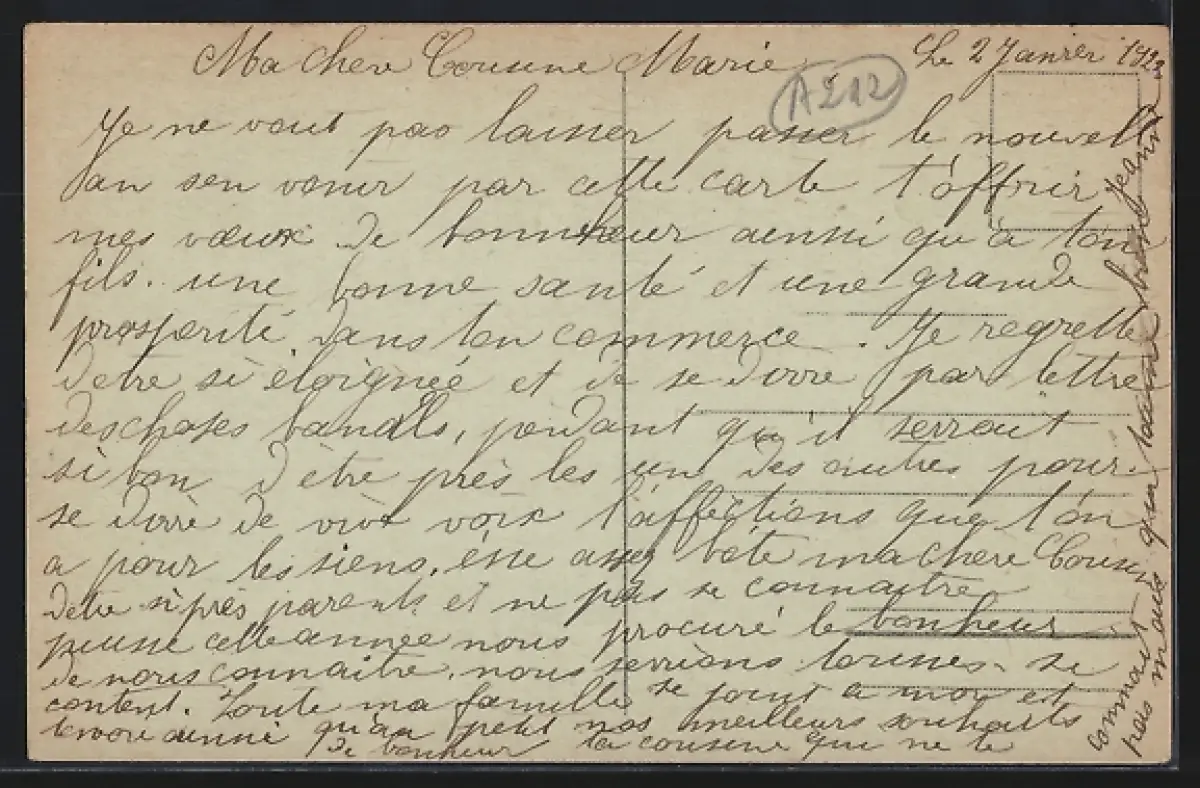 Le 2 Janvier 1922
Ma chere Cousine Marie
A212
Je ne vout pas laisser passer le nouvell
an sen venir par cette carte t'offrir
mes vœux de bonnheur ainssi qu'à ton
fils. une bonne santé et une grande
prosperité dans ton commerce. Je regrette
d'etre si éloignée et de se dirre par lettre
des choses banalls, pendant qu'il serrait
si bon d'être près les un des autres pour
se dirre de vive voix l'affections que l'on
a pour les siens, éne assez bête ma chère Cousine
d'etre si près parents et ne pas se connaitre
puisse cette année nous procuré le bonheur
de nous connaitre. nous serrions tousses si
content. Toute ma famille se joint a moi et
ainssi qu'au petit nos meilleurs souhaits
de bonheur ta cousine qui ne te
connait pas mais qui t'aime bien Jeanne